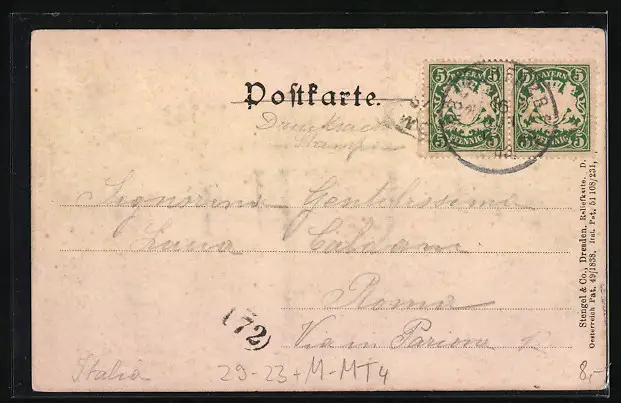 Postkarte.
Drucksache
Stampe
5 BAYERN 5 5 BAYERN 5
5 PFENNIG 5 5 PFENNIG 5
Signorina Gentilissima
Roma
Via in Parione
(72)
Italia
29-23+M-MT4
8,-
Stengel & Co., Dresden. Reliefkarte. D.
Oesterreich Pat. 49/1838, Ital. Pat. 51 108/231,